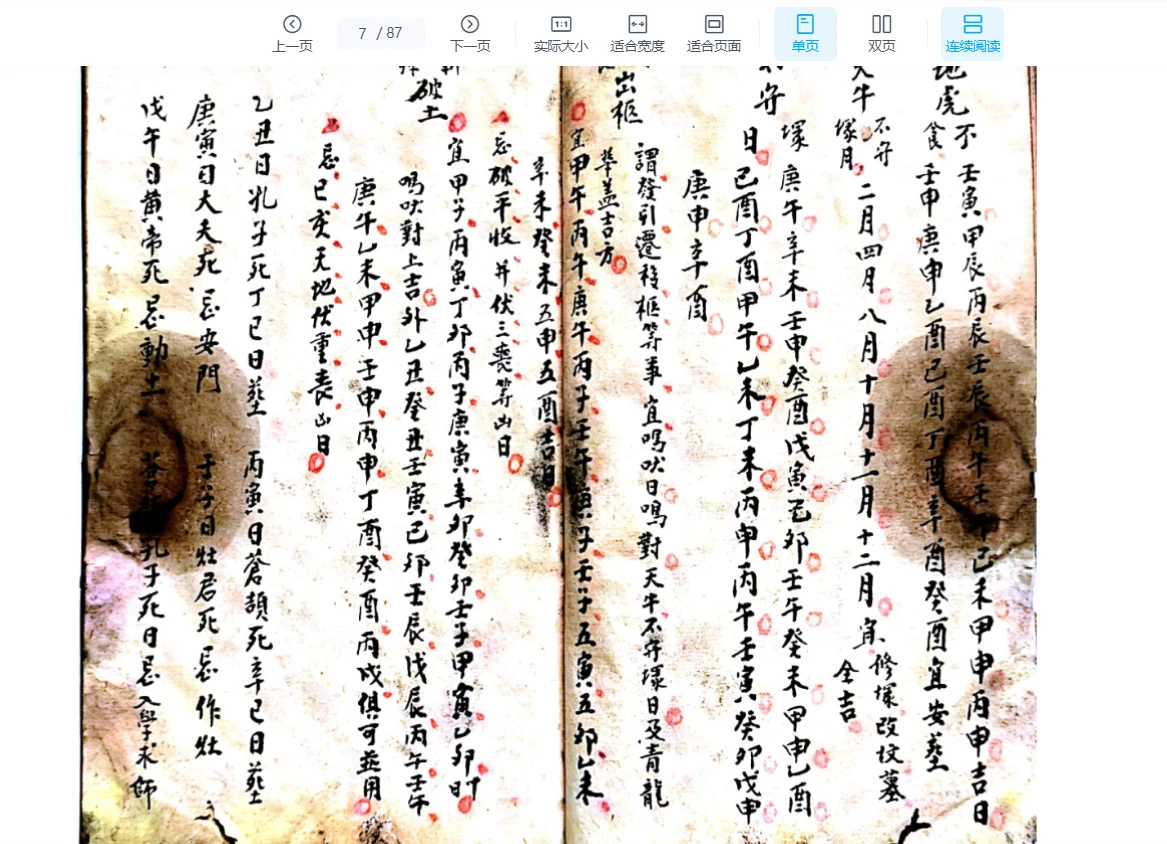 上一页
7 / 87
下一页
1:1
实际大小
适合宽度
适合页面
单页
双页
连续阅读
地虎不
食
壬寅甲辰丙辰壬辰丙午壬
己未甲申丙申吉日
壬申庚申乙酉己酉丁酉辛酉癸酉宜安塟
天牛
不守
塚月
二月四月八月十月十一月十二月宜
修塚改坟墓
全吉
不守
塚
庚午辛未壬申癸酉戊寅己卯壬午癸未甲申乙酉
日
己酉丁酉甲午乙未丁未丙申丙午壬寅癸卯戊申
庚申辛酉
出柩
謂發引遷移柩等事宜鳴吠日鳴對天牛不守塚日及青龍
華盖吉方
宜甲午丙午庚午丙子壬午庚子壬子五寅五卯乙未
辛未癸未五申五酉吉日
忌破平收并伏三喪等出日
破土
宜甲子丙寅丁卯丙子庚寅辛卯癸卯壬子甲寅乙卯
鳴吠對上吉外乙丑癸丑壬寅己卯壬辰戊辰丙午壬午
庚午乙未甲申壬申丙申丁酉癸酉丙戌俱可並用
忌已亥天地伏重喪凶日
乙丑日孔子死丁巳日塟
丙寅日蒼頡死辛巳日塟
庚寅日大夫死忌安門
子日灶君死忌作灶
戊午日黄帝死忌動土
孔子死日忌入學求師